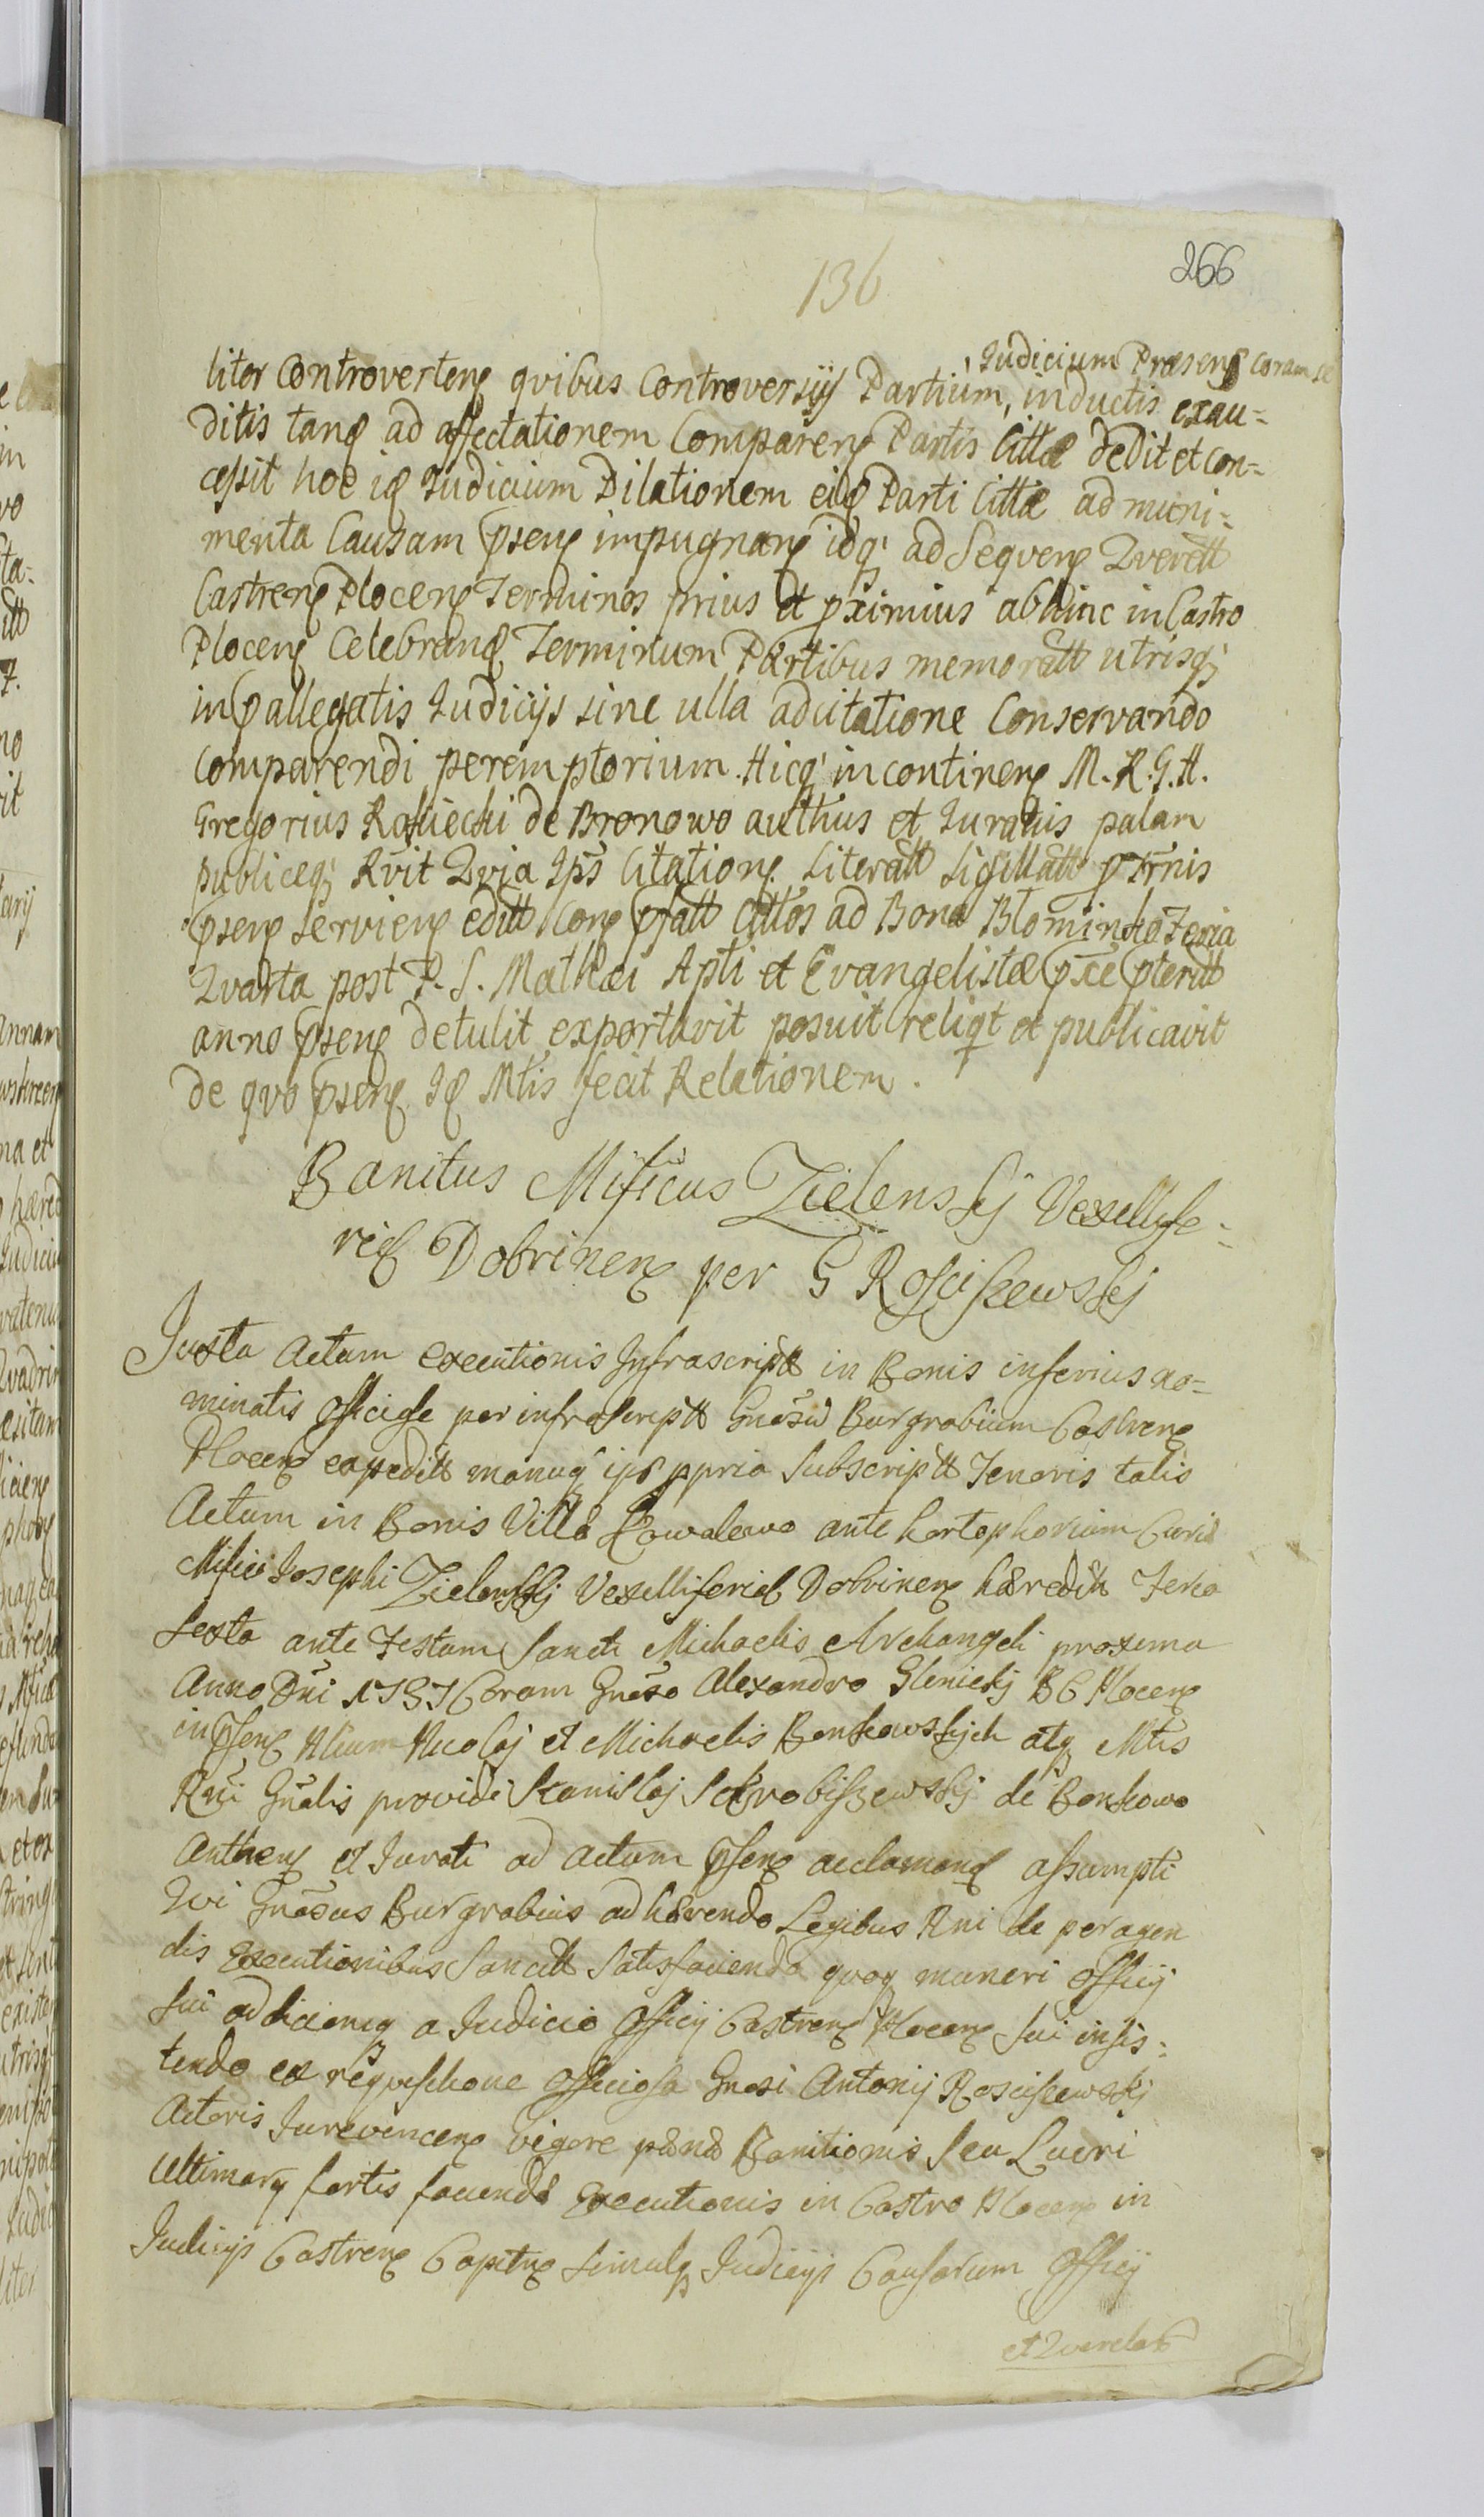 136
266
Judicium Præsenꝭ coram se
liter Controvertenꝭ qvibus Controversijs Partium, inductis exau-
ditis tanꝙ ad affectationem Comparenꝭ Partis Cittæ dedit et con-
cessit hoc iꝙ Judicium Dilationem eiꝙ Parti Cittæ ad muni-
menta Causam p̃senꝭ impugnanꝭ idq́ ad Seqvenꝭ Qverell̃
Castrenꝭ Plocenꝭ Terminos prius et pximius abhinc in Castro
Plocenꝭ Celebranꝭ Terminum Partibus memoratt utrisq́
in p̃allegatis Judicijs sine ulla adcitatione Conservando
comparendi peremptorium. Hicq́ incontinenꝭ M. R. G. H.
Gregorius de Bronowo auth̃us et Juratus palam
publiceq́ Rvit Qvia Ip̃s Citationꝭ Literatt Sigillatt
p̃senꝭ servienꝭ editt p̃fatt Cittos ad Bona Feria
Qvarta post F. S. Mathæi Apti et Evangelistæ pteritt
anno p̃senꝭ detulit exportavit posuit reliqt et publicavit
de qvo p̃senꝭ Iꝙ Mtis fecit Relationem.
Banitus Mificus Zielenskj Vexillife-
riꝙ Dobrinenꝭ per G Rosciszewskj
Juxta Actum executionis Infrascriptt in Bonis inferius no-
minatis Officiose per infrascriptt Gnosũ Burgrabium Castrenꝭ
Plocenꝭ expeditt manuq́ ips ppria Subscriptt Tenoris talis
Actum in Bonis Villæ Kowalewo ante hortophorium Curiæ
Mifici Josephi Zielenskj Vexilliferiꝙ Dobrinenꝭ hæredit̃ Feria
Sexta ante Festum Sancti Michaelis Archangeli proxima
Anno Dni 1737 Coram Gnoso Alexandro Glinickj B C Plocenꝭ
in p̃senꝭ Nlium Nicolaj et Michaelis Bonkowskjch atq́ Mtis
Rni Gnalis providi Stanislaj Schrobiszewskj de Bonkowo
Authenꝭ et Jurati ad actum p̃senꝭ acclamanꝭ assumpti
Qvi Gnosus Burgrabius adhærendo Legibus Rni de peragen
dis executionibus Sancitt Satisfaciendo qvoq́ muneri officij
sui addicionq́ a Judicio Officij Castrenꝭ Plocenꝭ sui insis-
tendo ex reqvisitione Officiosa Gnosi Antonij Rosciszewskj
Actoris Jurevincenꝭ vigore pænæ Banitionis Seu Lucri
Ultimarꝭ sortis faciendæ Executionis in Castro Plocenꝭ in
Judicijs Castrenꝭ Capitnꝭ simulq́ Judicijs Causarum Officij
et Qverelarꝭ